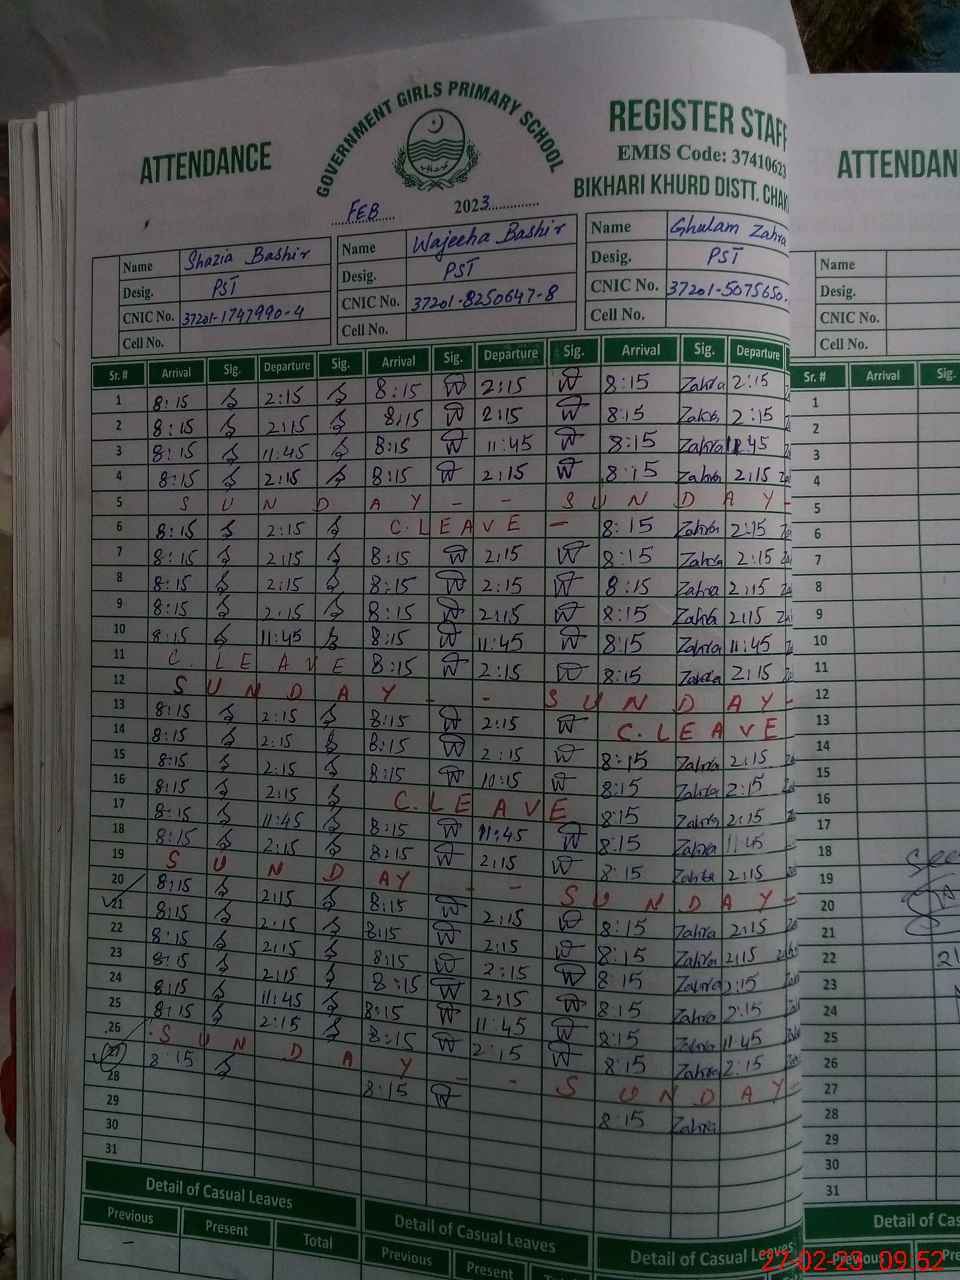 GOVERNMENT GIRLS PRIMARY SCHOOL
ATTENDANCE
REGISTER STAFF
EMIS Code: 3741062
BIKHARI KHURD DISTT. CHAK
FEB 2023
ATTENDAN
Name Shazia Bashir Name Wajeeha Bashir Name Ghulam Zahra Name
Desig. PST Desig. PST Desig. PST Desig.
CNIC No. 37201-1747990-4 CNIC No. 37201-8250647-8 CNIC No. 37201-5075650. CNIC No.
Cell No. Cell No. Cell No. Cell No.
Sr. # Arrival Sig. Departure Sig. Arrival Sig. Departure Sig. Arrival Sig. Departure Sr. # Arrival Sig.
1 8:15 2:15 8:15 2:15 8:15 Zahra 2:15 1
2 8:15 2:15 8:15 2:15 8:15 Zahra 2:15 2
3 8:15 11:45 8:15 11:45 8:15 Zahra 11:45 3
4 8:15 2:15 8:15 2:15 8:15 Zahra 2:15 4
5 S U N D A Y - - S U N D A Y - 5
6 8:15 2:15 C. LEAVE - 8:15 Zahra 2:15 6
7 8:15 2:15 8:15 2:15 8:15 Zahra 2:15 7
8 8:15 2:15 8:15 2:15 8:15 Zahra 2:15 8
9 8:15 2:15 8:15 2:15 8:15 Zahra 2:15 9
10 8:15 11:45 8:15 11:45 8:15 Zahra 11:45 10
11 C. LEAVE 8:15 2:15 8:15 Zahra 2:15 11
12 S U N D A Y - - S U N D A Y - 12
13 8:15 2:15 8:15 2:15 C. LEAVE 13
14 8:15 2:15 8:15 2:15 8:15 Zahra 2:15 14
15 8:15 2:15 8:15 10:15 8:15 Zahra 2:15 15
16 8:15 2:15 C. LEAVE 8:15 Zahra 2:15 16
17 8:15 11:45 8:15 11:45 8:15 Zahra 11:45 17
18 8:15 2:15 8:15 2:15 8:15 Zahra 2:15 18
19 S U N D A Y - - S U N D A Y - 19
20 8:15 2:15 8:15 2:15 8:15 Zahra 2:15 20
21 8:15 2:15 8:15 2:15 8:15 Zahra 2:15 21
22 8:15 2:15 8:15 2:15 8:15 Zahra 2:15 22
23 8:15 2:15 8:15 2:15 8:15 Zahra 2:15 23
24 8:15 11:45 8:15 11:45 8:15 Zahra 11:45 24
25 8:15 2:15 8:15 2:15 8:15 Zahra 2:15 25
26 S U N D A Y - - S U N D A Y - 26
27 8:15 8:15 8:15 Zahra 27
28 28
29 29
30 30
31 31
Detail of Casual Leaves Detail of Casual Leaves Detail of Casual Leaves Detail of Cas
Previous Present Total Previous Present Previous
27-02-23 09:52